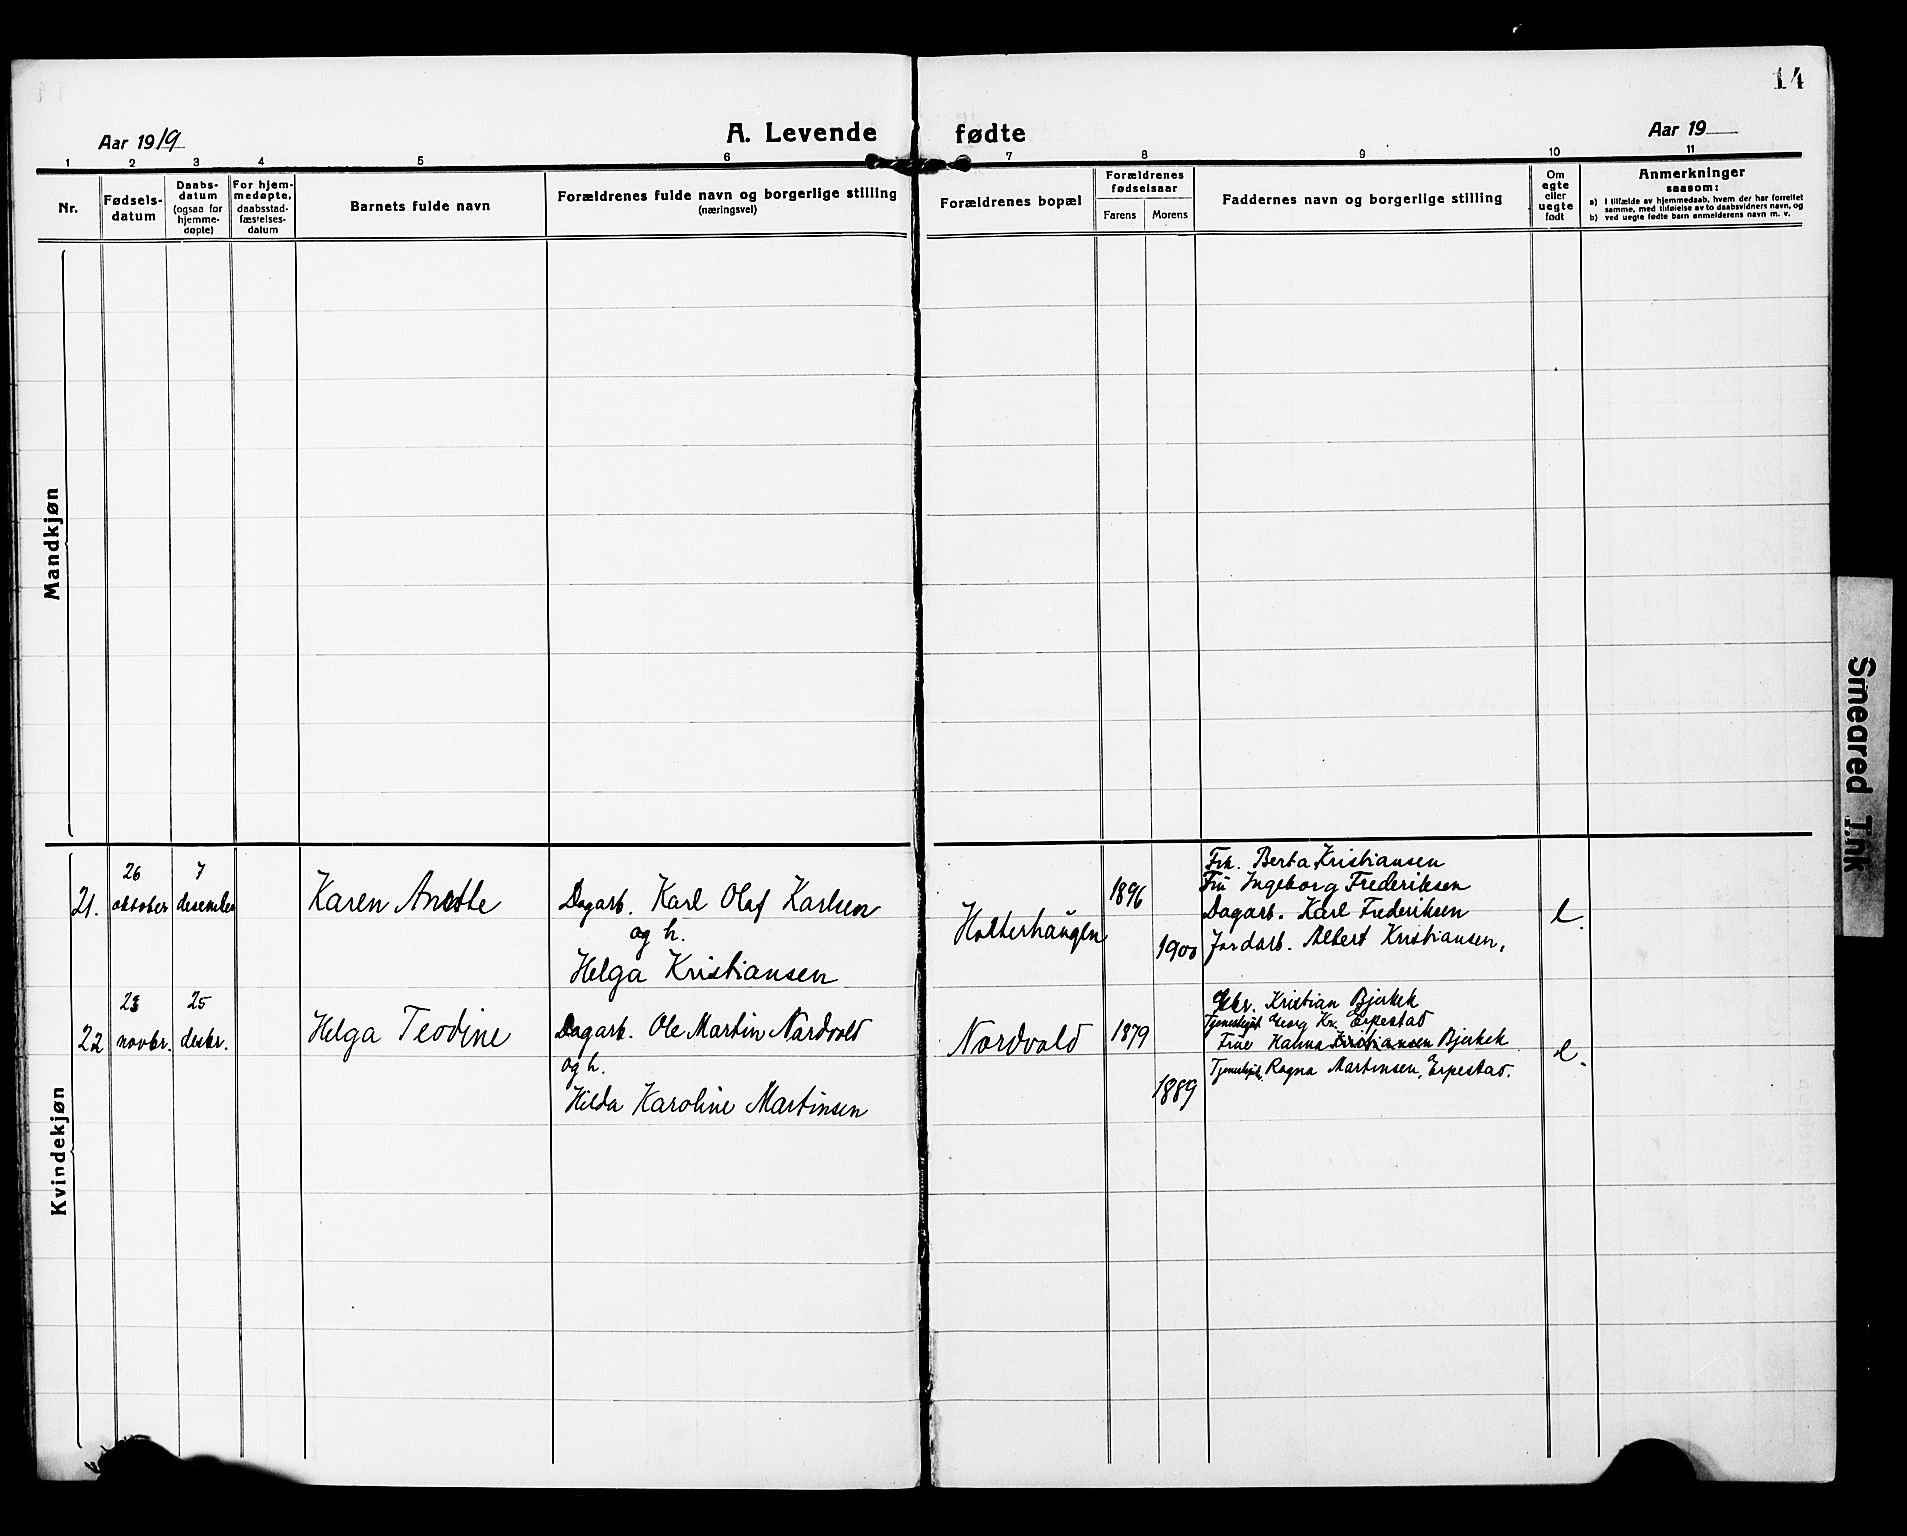 14
Aar 1919
A. Levende fødte
Aar 19
1 2 3 4 5 6 7 8 9 10 11
Nr.
Fødsels-
datum
Daabs-
datum
(ogsaa for
hjemme-
døpte)
For hjem-
medøpte,
daabsstad-
fæstelses-
datum
Barnets fulde navn
Forældrenes fulde navn og borgerlige stilling
(næringsvei)
Forældrenes bopæl
Forældrenes
fødselsaar
Farens
Morens
Faddernes navn og borgerlige stilling
Om
egte
eller
uegte
født
Anmerkninger
saasom:
a) I tilfælde av hjemmedaab, hvem der har forrettet
samme, med tilføielse av to daabsvidners navn, og
b) ved uegte fødte barn anmelderens navn m. v.
Mandkjøn
Kvindekjøn
21.
26
oktober
7
desember
Karen Anette
Dagarb. Karl Olaf Karlsen
og h.
Helga Kristiansen
Holterhaugen
1896
1900
Frk. Berta Kristiansen
Fru Ingeborg Frederiksen
Dagarb. Karl Frederiksen
Jordarb. Albert Kristiansen,
e.
22
23
novbr.
25
desbr.
Helga Teodine
Dagarb. Ole Martin Nordvold
og h.
Hilda Karoline Martinsen
Nordvold
1879
1889
Kristian Bjerkek
Georg Kr. Erpestad
Frue Hanna Kristiansen Bjerkek
Ragna Martinsen, Erpestad.
e.
Smeared Ink